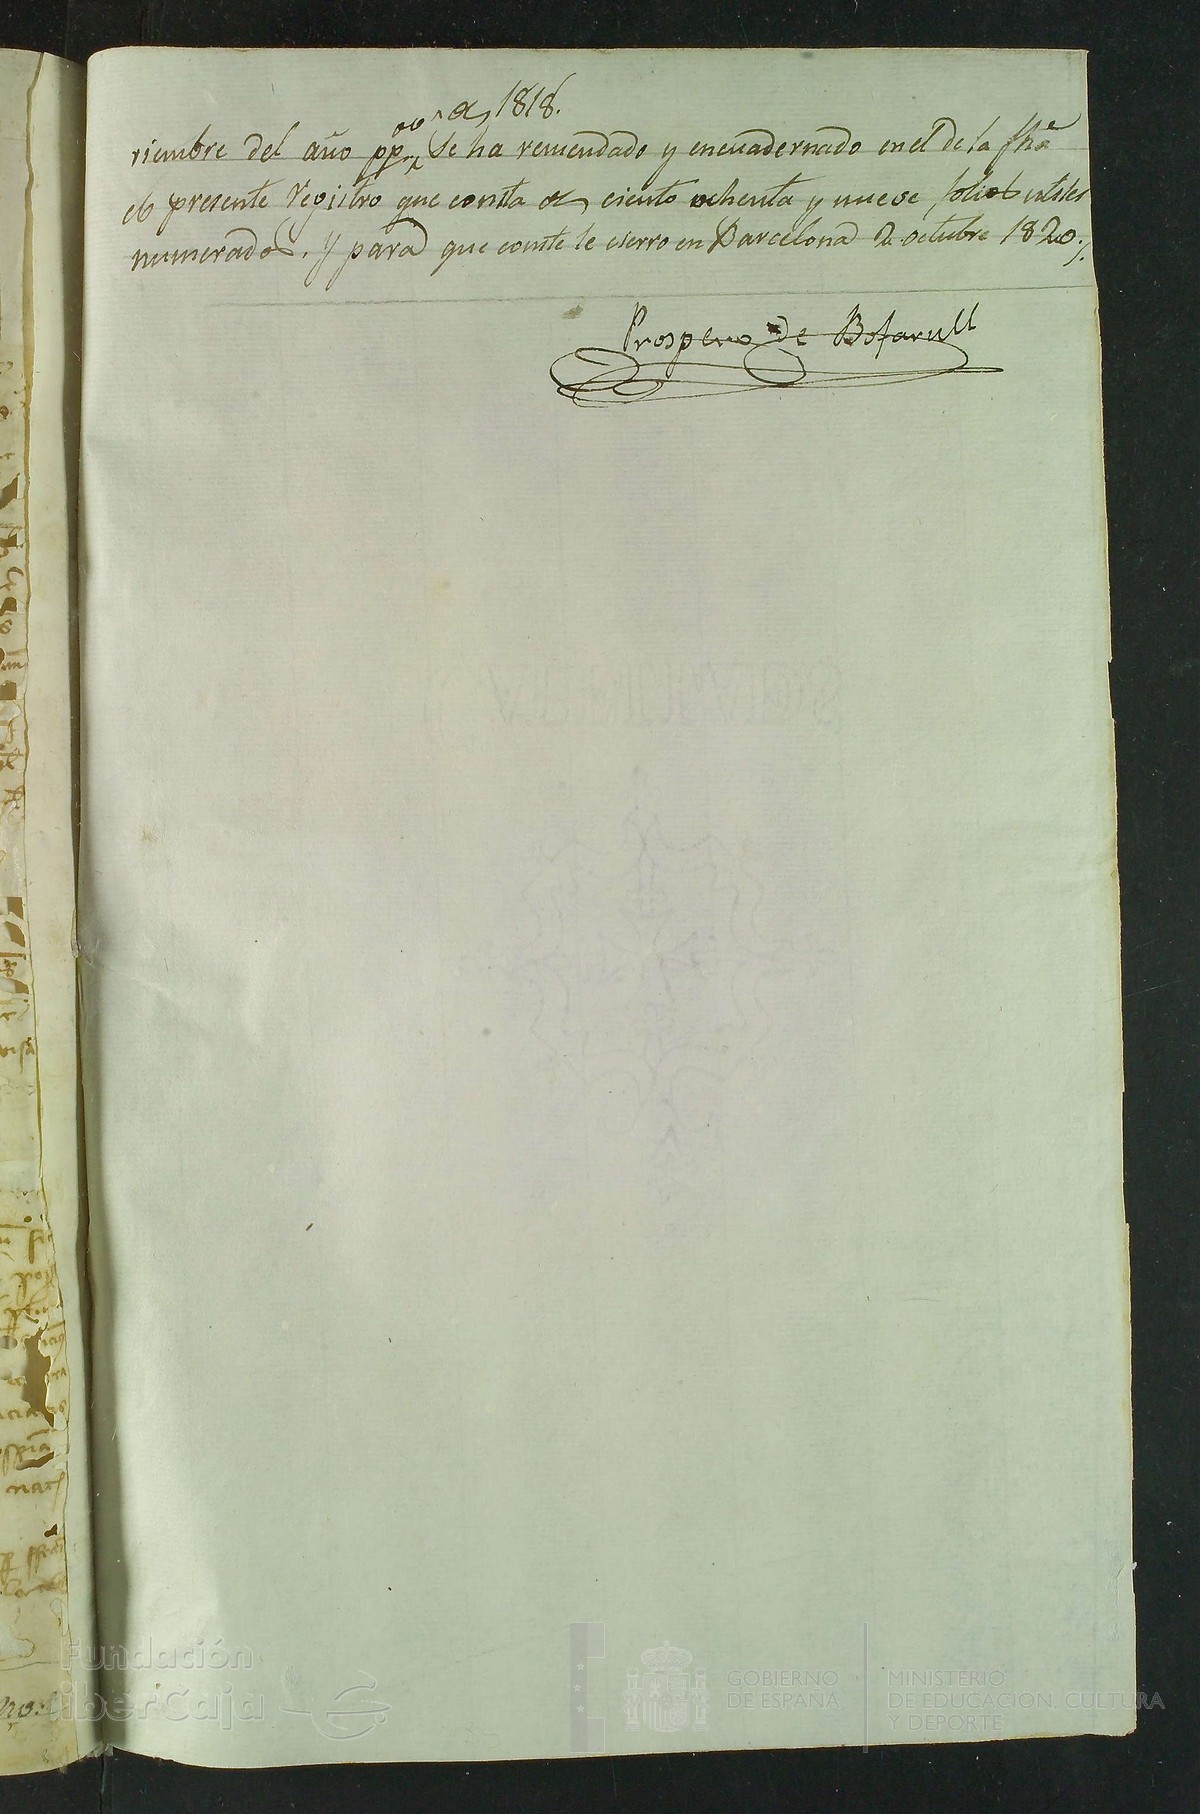 de 1818.
riembre del año pp.º Se ha remendado y encuadernado en el de la fhã
el presente Registro que consta de ciento ochenta y nueve folios utiles
numerados. Y para que conste le cierro en Barcelona 2 octubre 1820.
Prospero de Bofarull
Fundación
iberCaja
GOBIERNO
DE ESPAÑA
MINISTERIO
DE EDUCACIÓN, CULTURA
Y DEPORTE